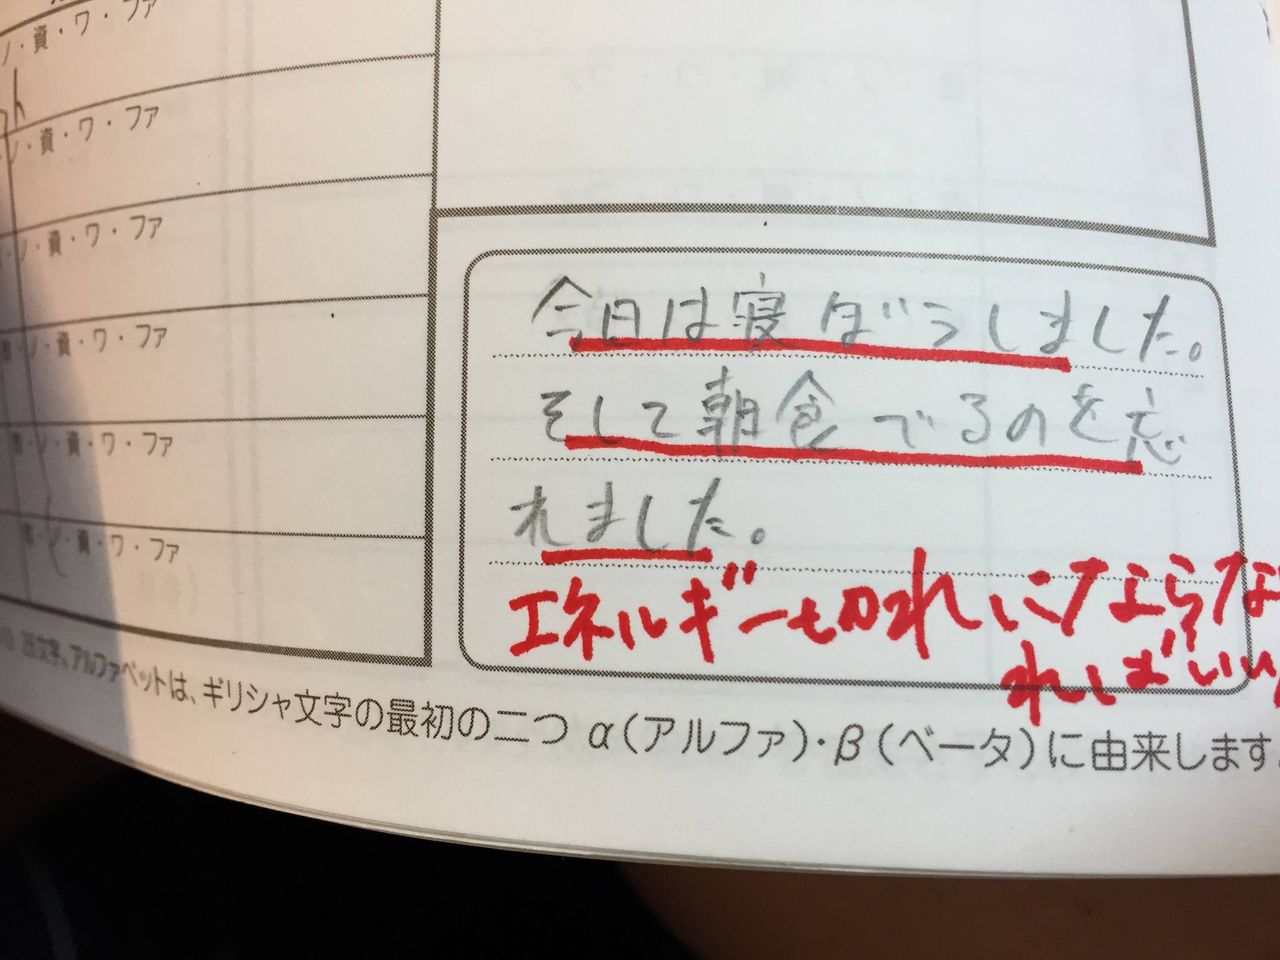 ノ・資・ワ・ファ
ノ・資・ワ・ファ
ノ・資・ワ・ファ
ノ・資・ワ・ファ
ノ・資・ワ・ファ
ノ・資・ワ・ファ
今日は寝ぼうしました。
そして朝食でるのを忘
れました。
エネルギー切れにならな
ればいい
文字、アルファベットは、ギリシャ文字の最初の二つ α(アルファ)・β(ベータ)に由来します。